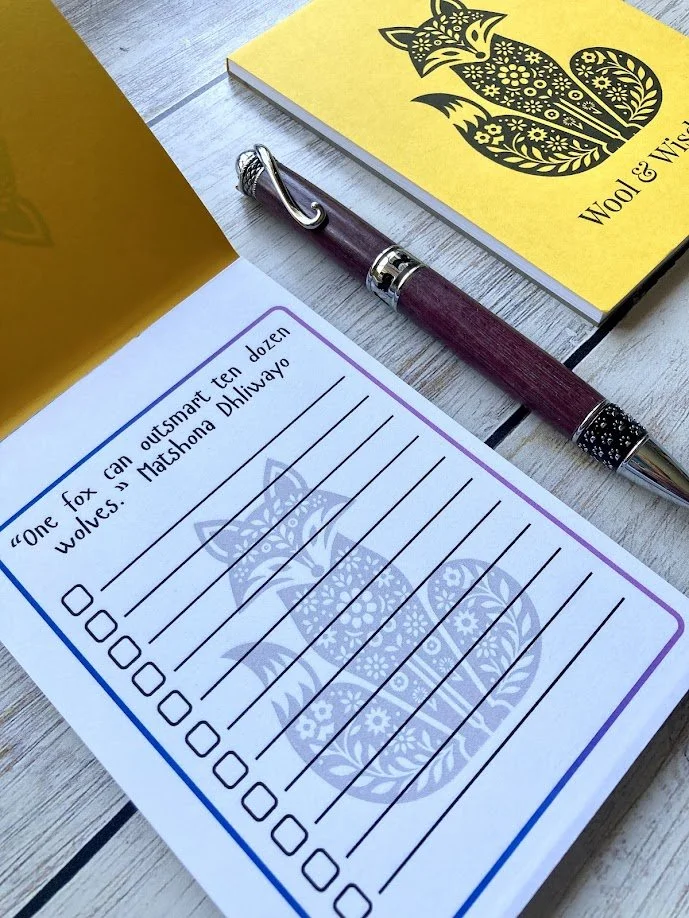 Wool &
“One fox can outsmart ten dozen
wolves.” Matshona Dhliwayo